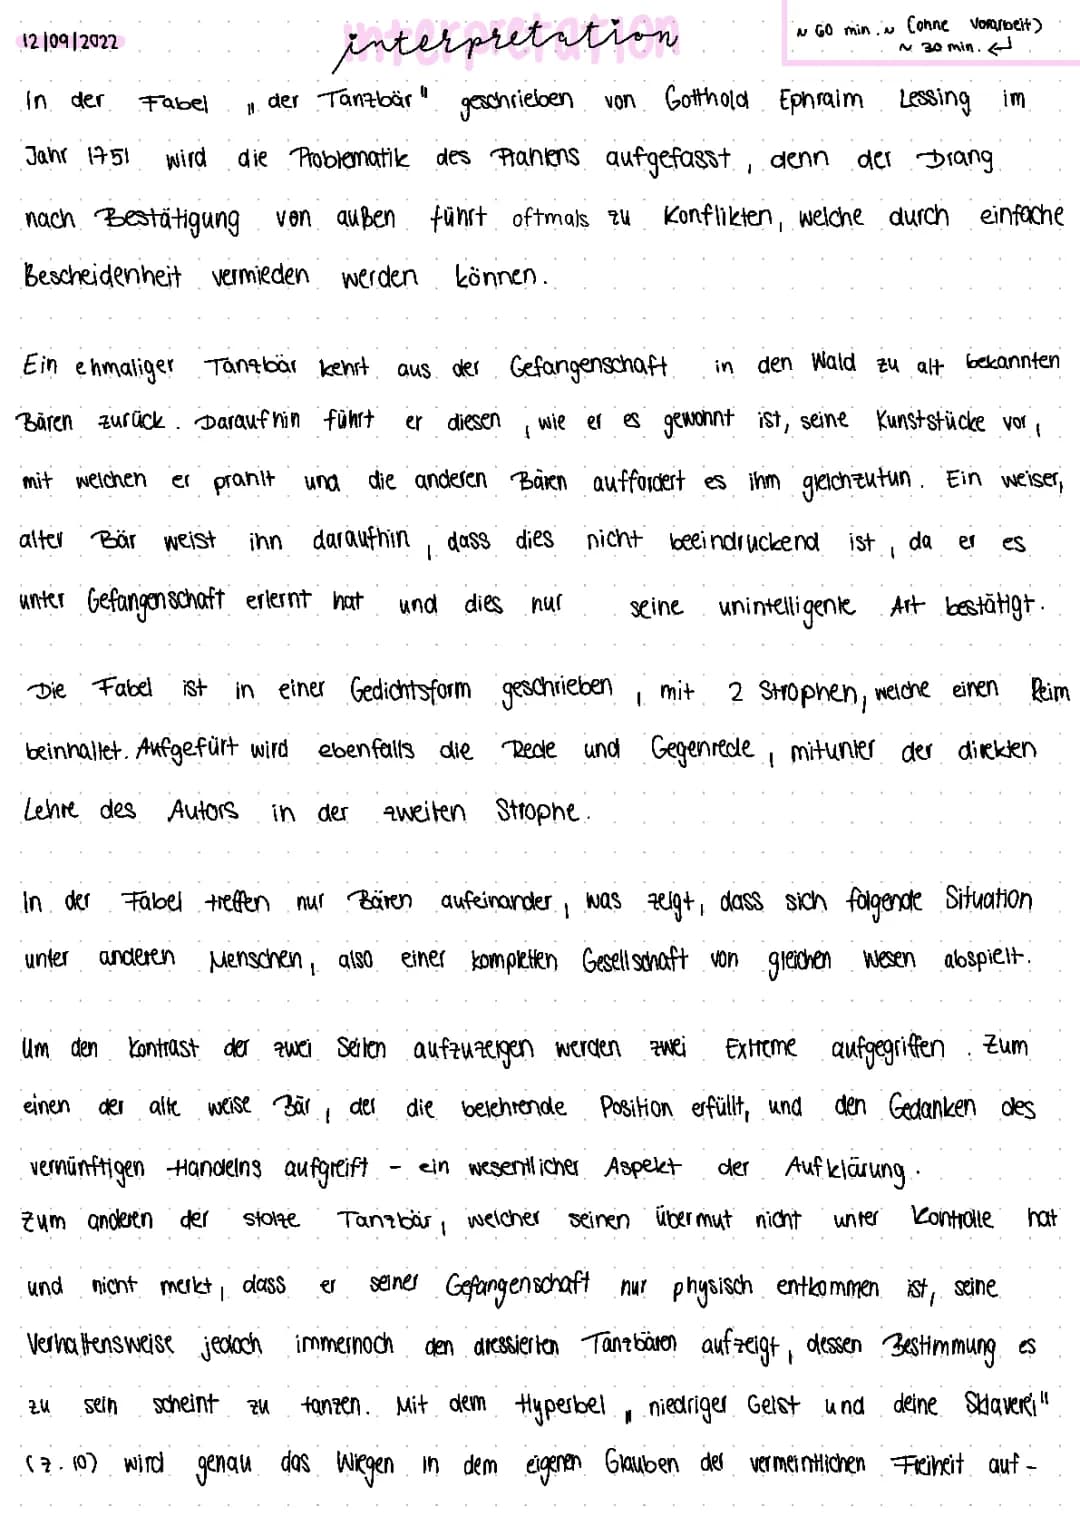 12/09/2022
interpretation
~ 60 min. ~ (ohne Vorarbeit)
~ 30 min. ↵
In der Fabel „der Tanzbär" geschrieben von Gotthold Ephraim Lessing im
Jahr 1751 wird die Problematik des Prahlens aufgefasst, denn der Drang
nach Bestätigung von außen führt oftmals zu Konflikten, welche durch einfache
Bescheidenheit vermieden werden können.
Ein ehmaliger Tanzbär kehrt aus der Gefangenschaft in den Wald zu alt bekannten
Bären zurück. Daraufhin führt er diesen, wie er es gewohnt ist, seine Kunststücke vor,
mit welchen er prahlt und die anderen Bären auffordert es ihm gleichzutun. Ein weiser,
alter Bär weist ihn daraufhin, dass dies nicht beeindruckend ist, da er es
unter Gefangenschaft erlernt hat und dies nur seine unintelligente Art bestätigt.
Die Fabel ist in einer Gedichtsform geschrieben, mit 2 Strophen, welche einen Reim
beinhaltet. Aufgefürt wird ebenfalls die Rede und Gegenrede, mitunter der direkten
Lehre des Autors in der zweiten Strophe.
In der Fabel treffen nur Bären aufeinander, was zeigt, dass sich folgende Situation
unter anderen Menschen, also einer kompletten Gesellschaft von gleichen Wesen abspielt.
Um den Kontrast der zwei Seiten aufzuzeigen werden zwei Extreme aufgegriffen. Zum
einen der alte weise Bär, der die belehrende Position erfüllt, und den Gedanken des
vernünftigen Handelns aufgreift - ein wesentlicher Aspekt der Aufklärung.
Zum anderen der stolze Tanzbär, welcher seinen übermut nicht unter Kontrolle hat
und nicht merkt, dass er seiner Gefangenschaft nur physisch entkommen ist, seine
Verhaltensweise jedoch immernoch den dressierten Tanzbären aufzeigt, dessen Bestimmung es
zu sein scheint zu tanzen. Mit dem Hyperbel „niedriger Geist und deine Sklaverei"
(Z. 10) wird genau das Wiegen in dem eigenen Glauben der vermeintlichen Freiheit auf-